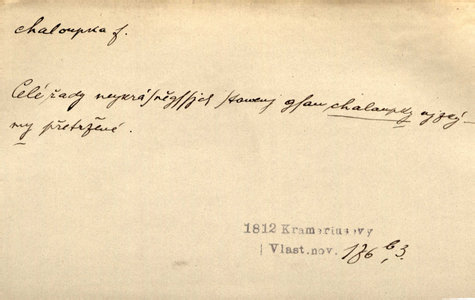 chaloupka f.
Celé řady neykrásněgssjch stawenj gsau chalaupky
my přetržené.
1812 Krameriusovy
Vlast. nov. 176 b, 3.